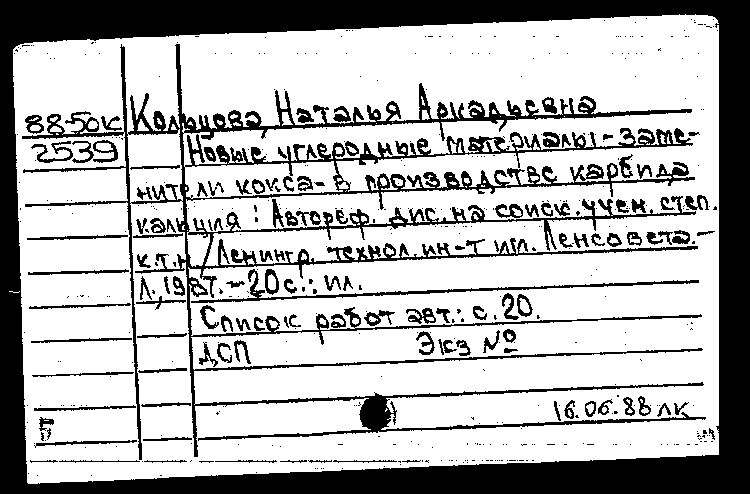 88-50к Кольцова, Наталья Аркадьевна
2539 Новые углеродные материалы - заме-
нители кокса - в производстве карбида
кальция : Автореф. дис. на соиск. учен. степ.
к.т.н / Ленингр. технол. ин-т им. Ленсовета. -
Л., 1987. - 20 с. : ил.
Список работ авт.: с. 20.
ДСП Экз №
16.06.88 лк
Б